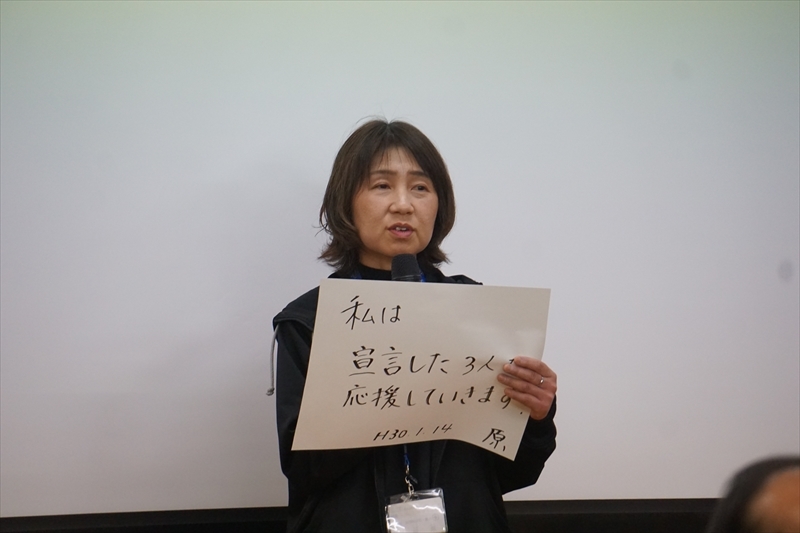 私は
宣言した3人
応援していきます
H30.1.14 原